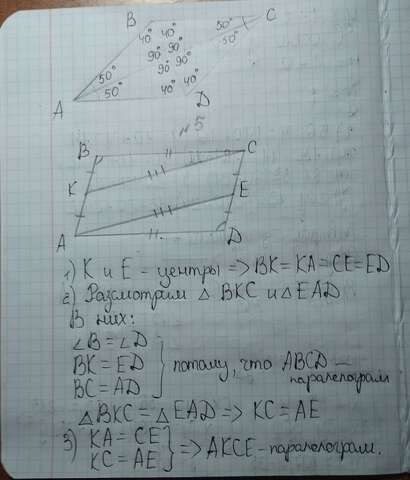 B C
50° 50°
40° 40°
90° 90°
90° 90°
40° 40°
50° 50°
A D
№5
B C
K E
A D
1) K и E - центры => BK = KA = CE = ED
2) Розмотрим △ BKC и △ EAD
В них:
∠B = ∠D
BK = ED } потому, что ABCD —
BC = AD паралелограм
△BKC = △EAD => KC = AE
3) KA = CE
KC = AE } => AKCE - паралелограм.